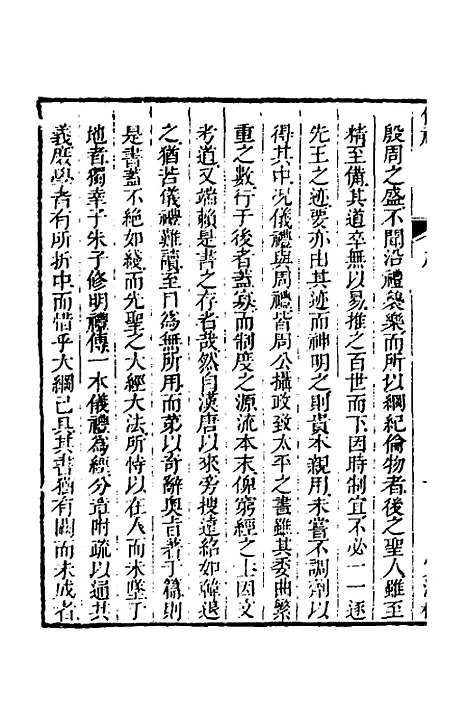 殷周之盛不聞沿禮襲樂而所以綱紀倫物者後之聖人雖至
精至備其道卒無以易推之百世而下因時制宜不必一一逐
先王之迹要亦由其迹而神明之則貴本親用未嘗不調劑以
得其中况儀禮與周禮皆周公攝政致太平之書雖其委曲繁
重之數行于後者蓋尠而制度之源流本末俾窮經之士因文
考道又端賴是書之存者哉然自漢唐以來旁搜遠紹如韓退
之猶苦儀禮難讀至目為無所用而第以奇辭奧旨著于篇則
是書蓋不絶如綫而先聖之大經大法所恃以在人而未墜于
地者獨幸子朱子修明禮傳一本儀禮為經分章附疏以通其
義庶學者有所折中而惜乎大綱已具其書猶有闕而未成者